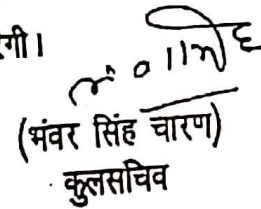 गी।
(भंवर सिंह चारण)
कुलसचिव